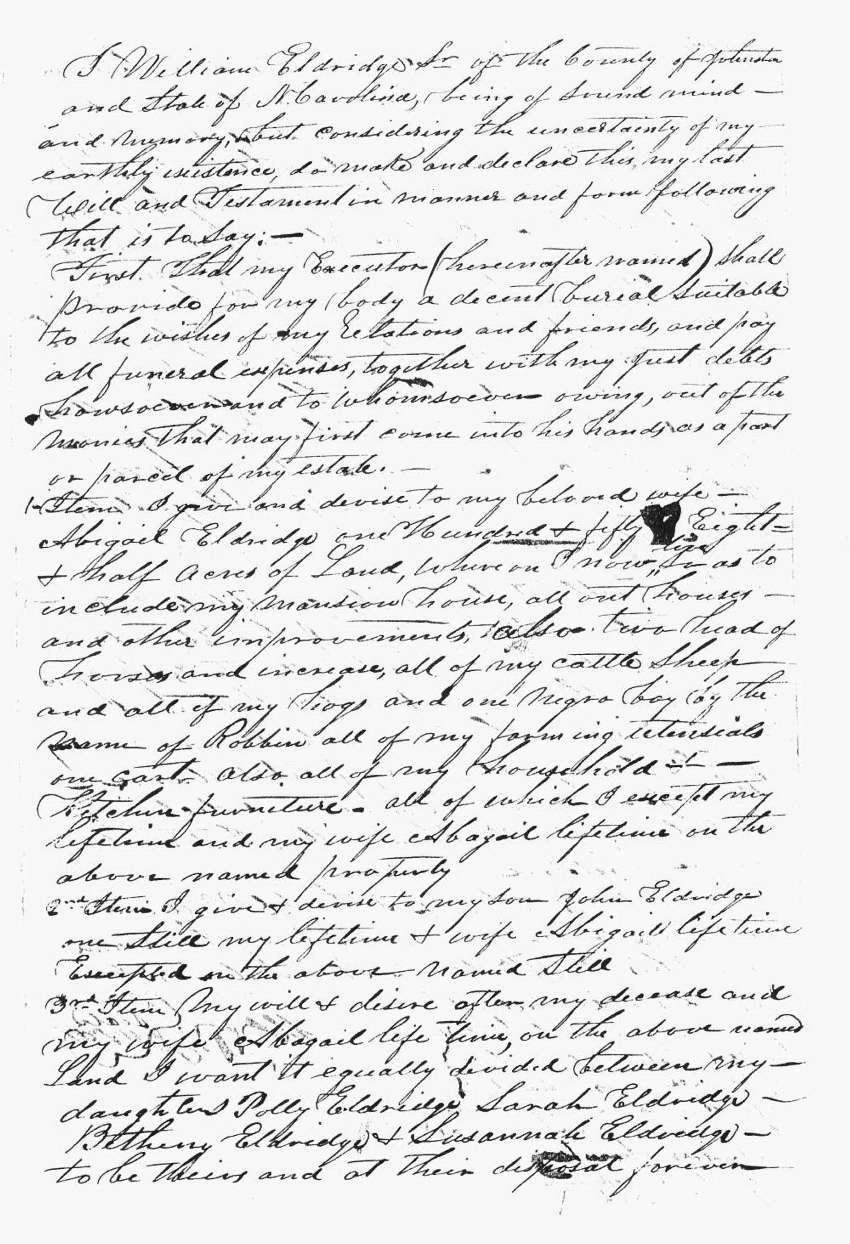 I William Eldridge Sr of the County of Johnston
and State of N. Carolina, being of sound mind –
and memory, but considering the uncertainty of my –
earthly existence, do make and declare this my last
Will and Testament in manner and form following
that is to say: –
First. That my Executor (hereinafter named) shall
provide for my body a decent burial suitable
to the wishes of my Relations and friends, and pay
all funeral expenses, together with my just debts
howsoever and to whomsoever owing, out of the
monies that may first come into his hands as a part
or parcel of my estate. –
1st Item I give and devise to my beloved wife –
Abigail Eldridge one Hundred & fifty Eight =
& half Acres of Land, whereon I now live So as to
include my mansion house, all out houses –
and other improvements, also two head of
horses and increase, all of my cattle Sheep
and all of my hogs and one negro boy by the
name of Robbin all of my farming utensials
one cart. Also all of my household & –
Kitchen furniture – all of which I except my
lifetime and my wife Abagail lifetime on the
above named property
2nd Item I give & devise to my son John Eldridge
one Still my lifetime & wife Abigail lifetime
Excepted on the above named Still
3rd Item My will & desire after my decease and
my wife Abagail life time, on the above named
Land I want it equally divided between my –
daughters Polly Eldridge Sarah Eldridge –
Betheny Eldridge & Susannah Eldridge –
to be theirs and at their disposal forever